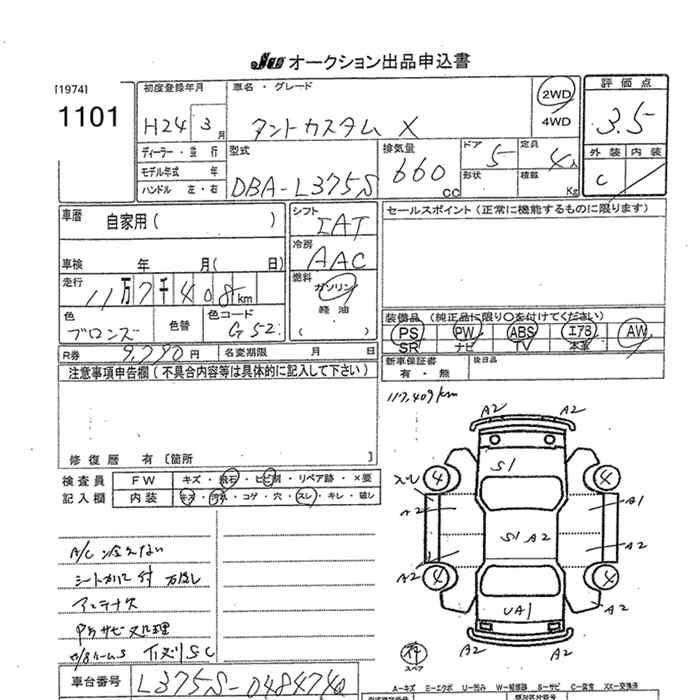 JU オークション出品申込書
[1974]
1101
初度登録年月
H24 3月
ディーラー・並行
モデル年式 年
ハンドル 左・右
車名・グレード
タントカスタム X
2WD
4WD
型式
DBA-L375S
排気量
660cc
ドア 5
形状
定員 4人
積載 Kg
評価点
3.5
外装 内装
C
車歴 自家用( )
車検 年 月( 日)
走行 11万7千408km
色 ブロンズ
色替
色コード G52
シフト IAT
冷房 AAC
燃料 ガソリン
軽油
( )
R券 9,790円 名変期限 月 日
セールスポイント(正常に機能するものに限ります)
装備品 (純正品に限り○を付けてください)
PS PW ABS エアB AW
SR ナビ TV 本革
新車保証書 有・無
後日品
注意事項申告欄(不具合内容等は具体的に記入して下さい)
修復歴 有[箇所 ]
検査員記入欄
FW キズ・飛石・ヒビ割・リペア跡・×要
内装 キズ・汚れ・コゲ・穴・スレ・キレ・破し
A/C 冷えない
アンテナ欠
内外サビ処理
車台番号 L375S-0484740
117,409km
A2 A2
S1
スレ
4 4
A2 A1
S1 A2
A2 A2
4 4
UA1
A2
A2 A2
スペア
A-キズ E-エクボ U-凹み W-補修跡 S-サビ C-腐食 XX-交換済